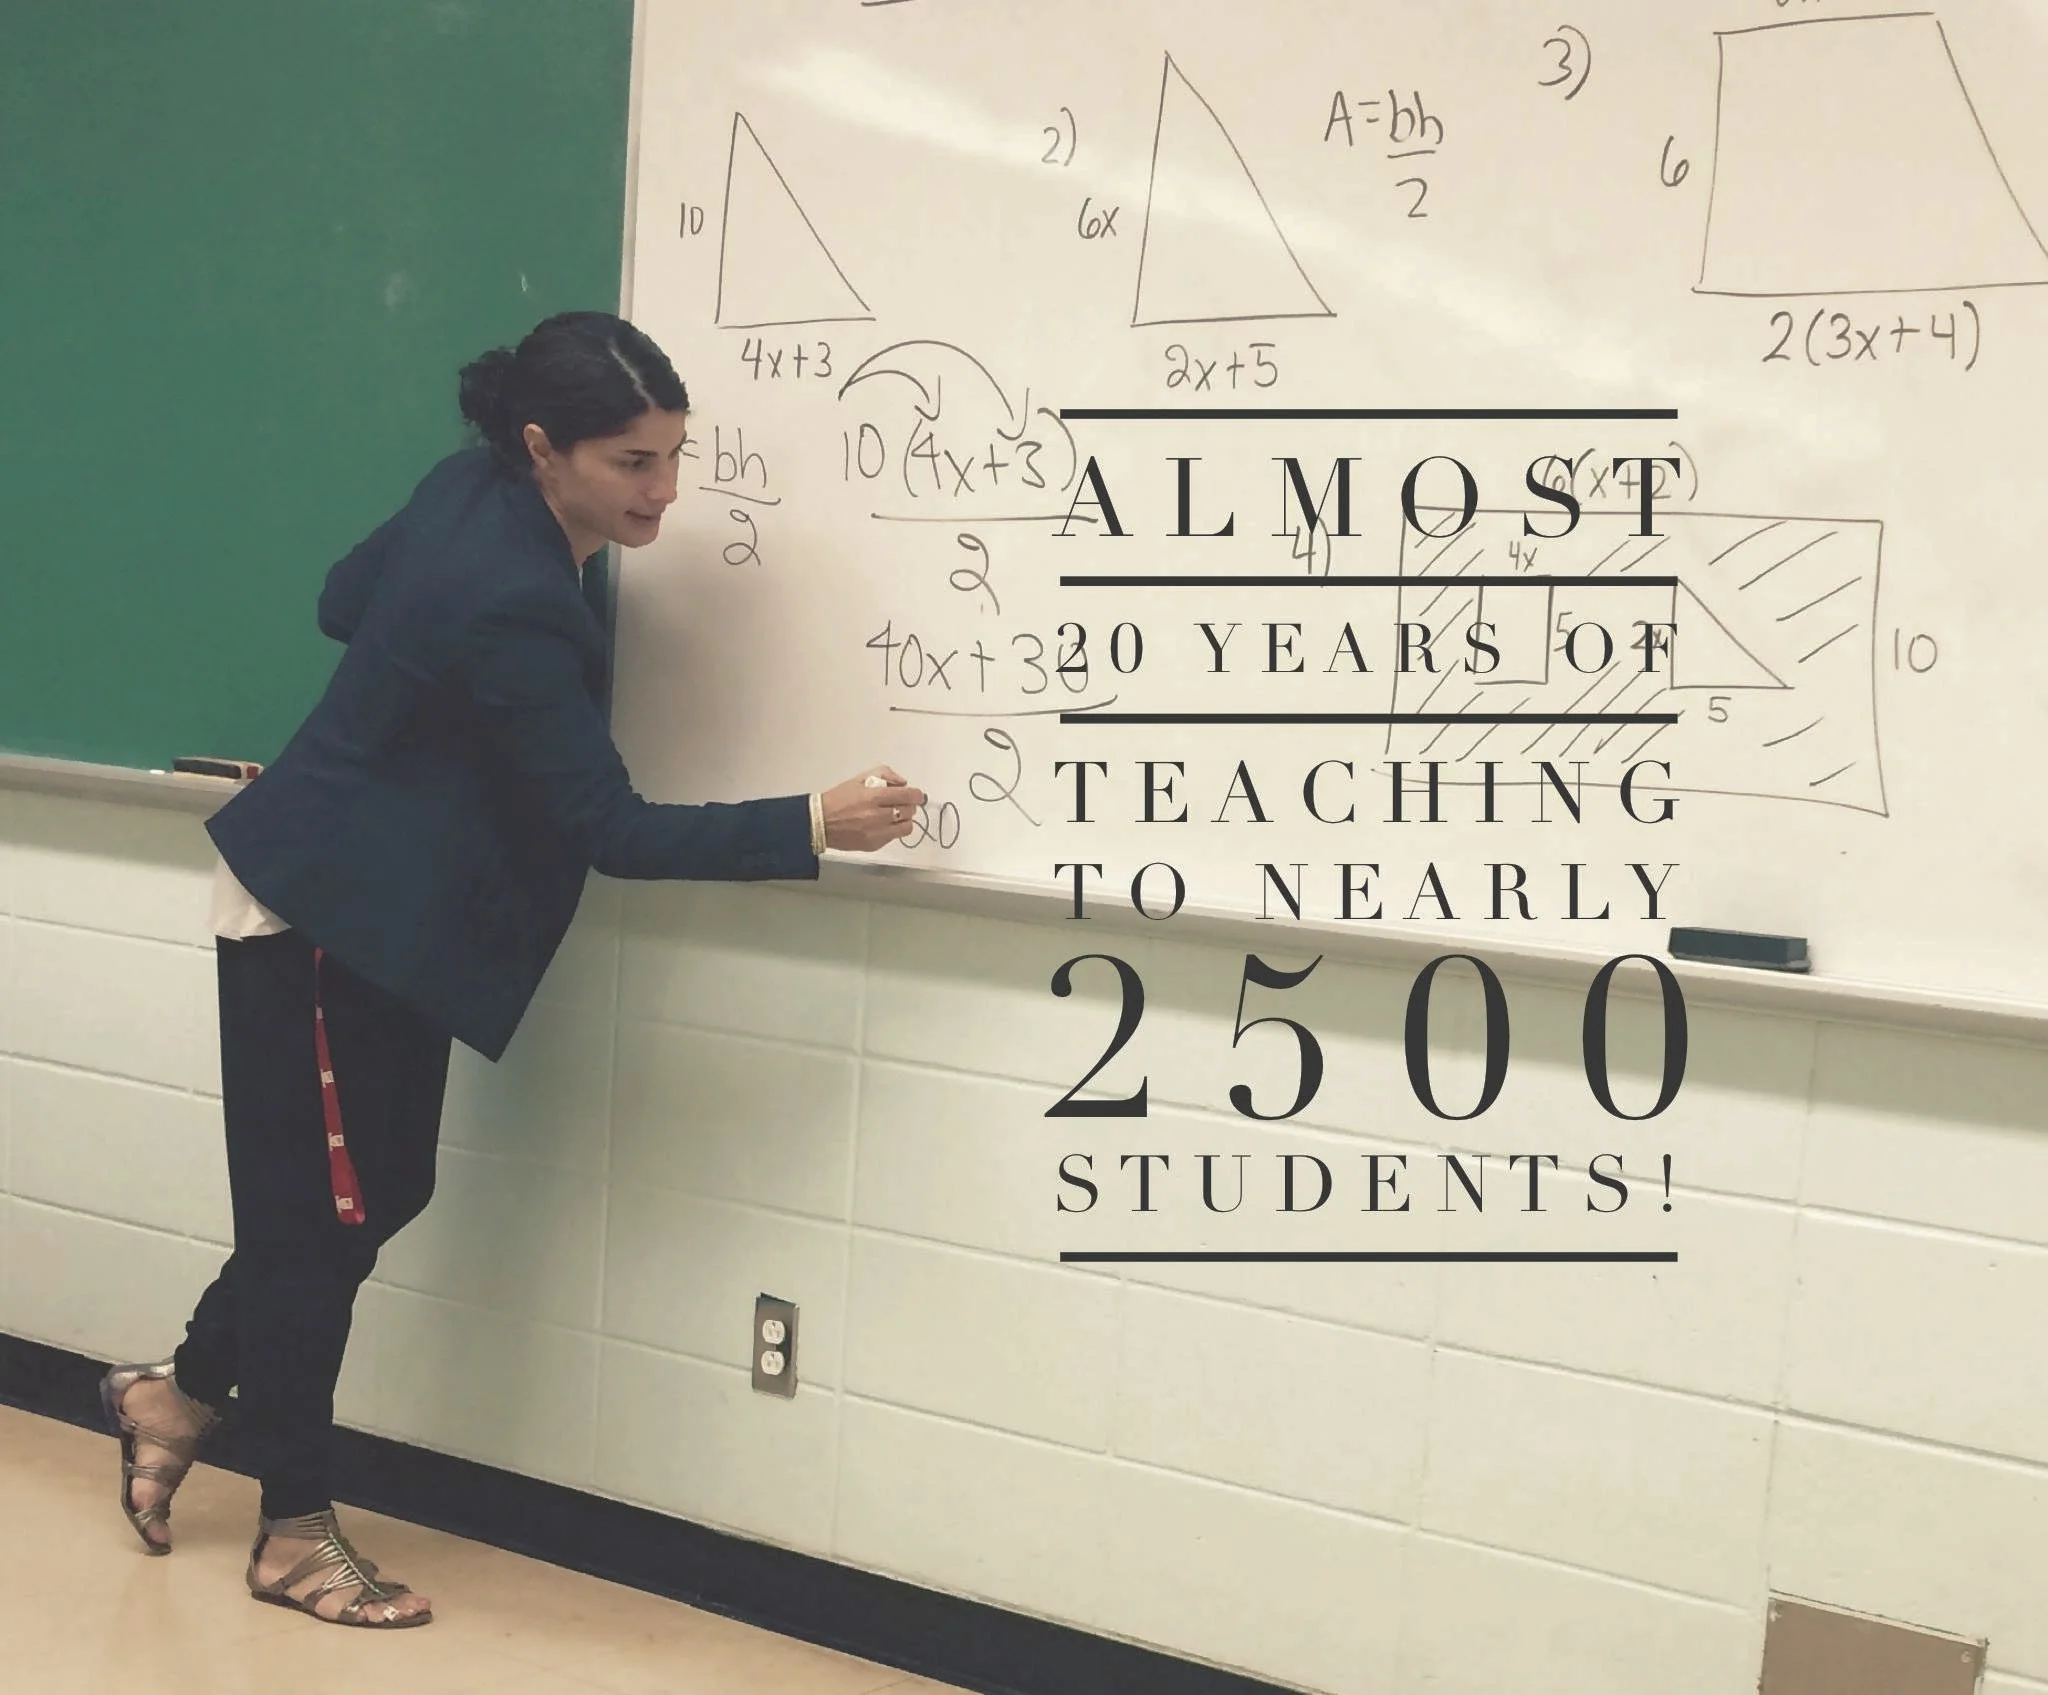 3)
2)
A=bh
2
10
6x
6
4x+3
2x+5
2(3x+4)
=bh
2
10(4x+3)
2
40x+30
2
20
6(x+2)
4)
4x
5
2x
5
10
ALMOST
20 YEARS OF
TEACHING
TO NEARLY
2500
STUDENTS!